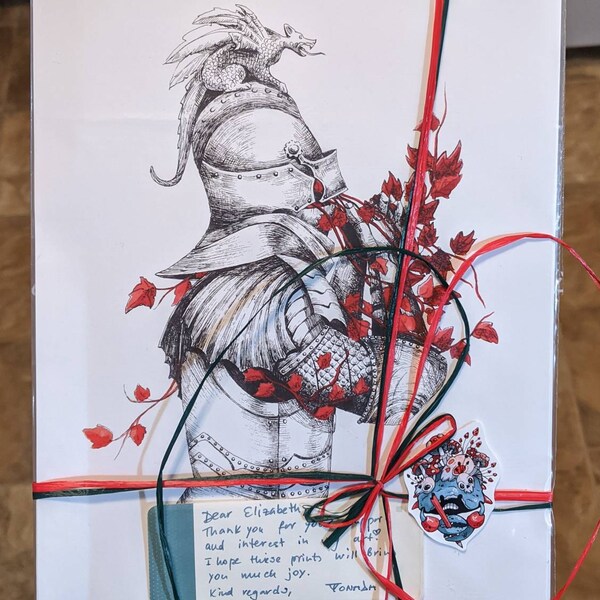 Dear Elizabeth
Thank you for
and interest in art
I hope these prints will bring
you much joy.
Kind regards,